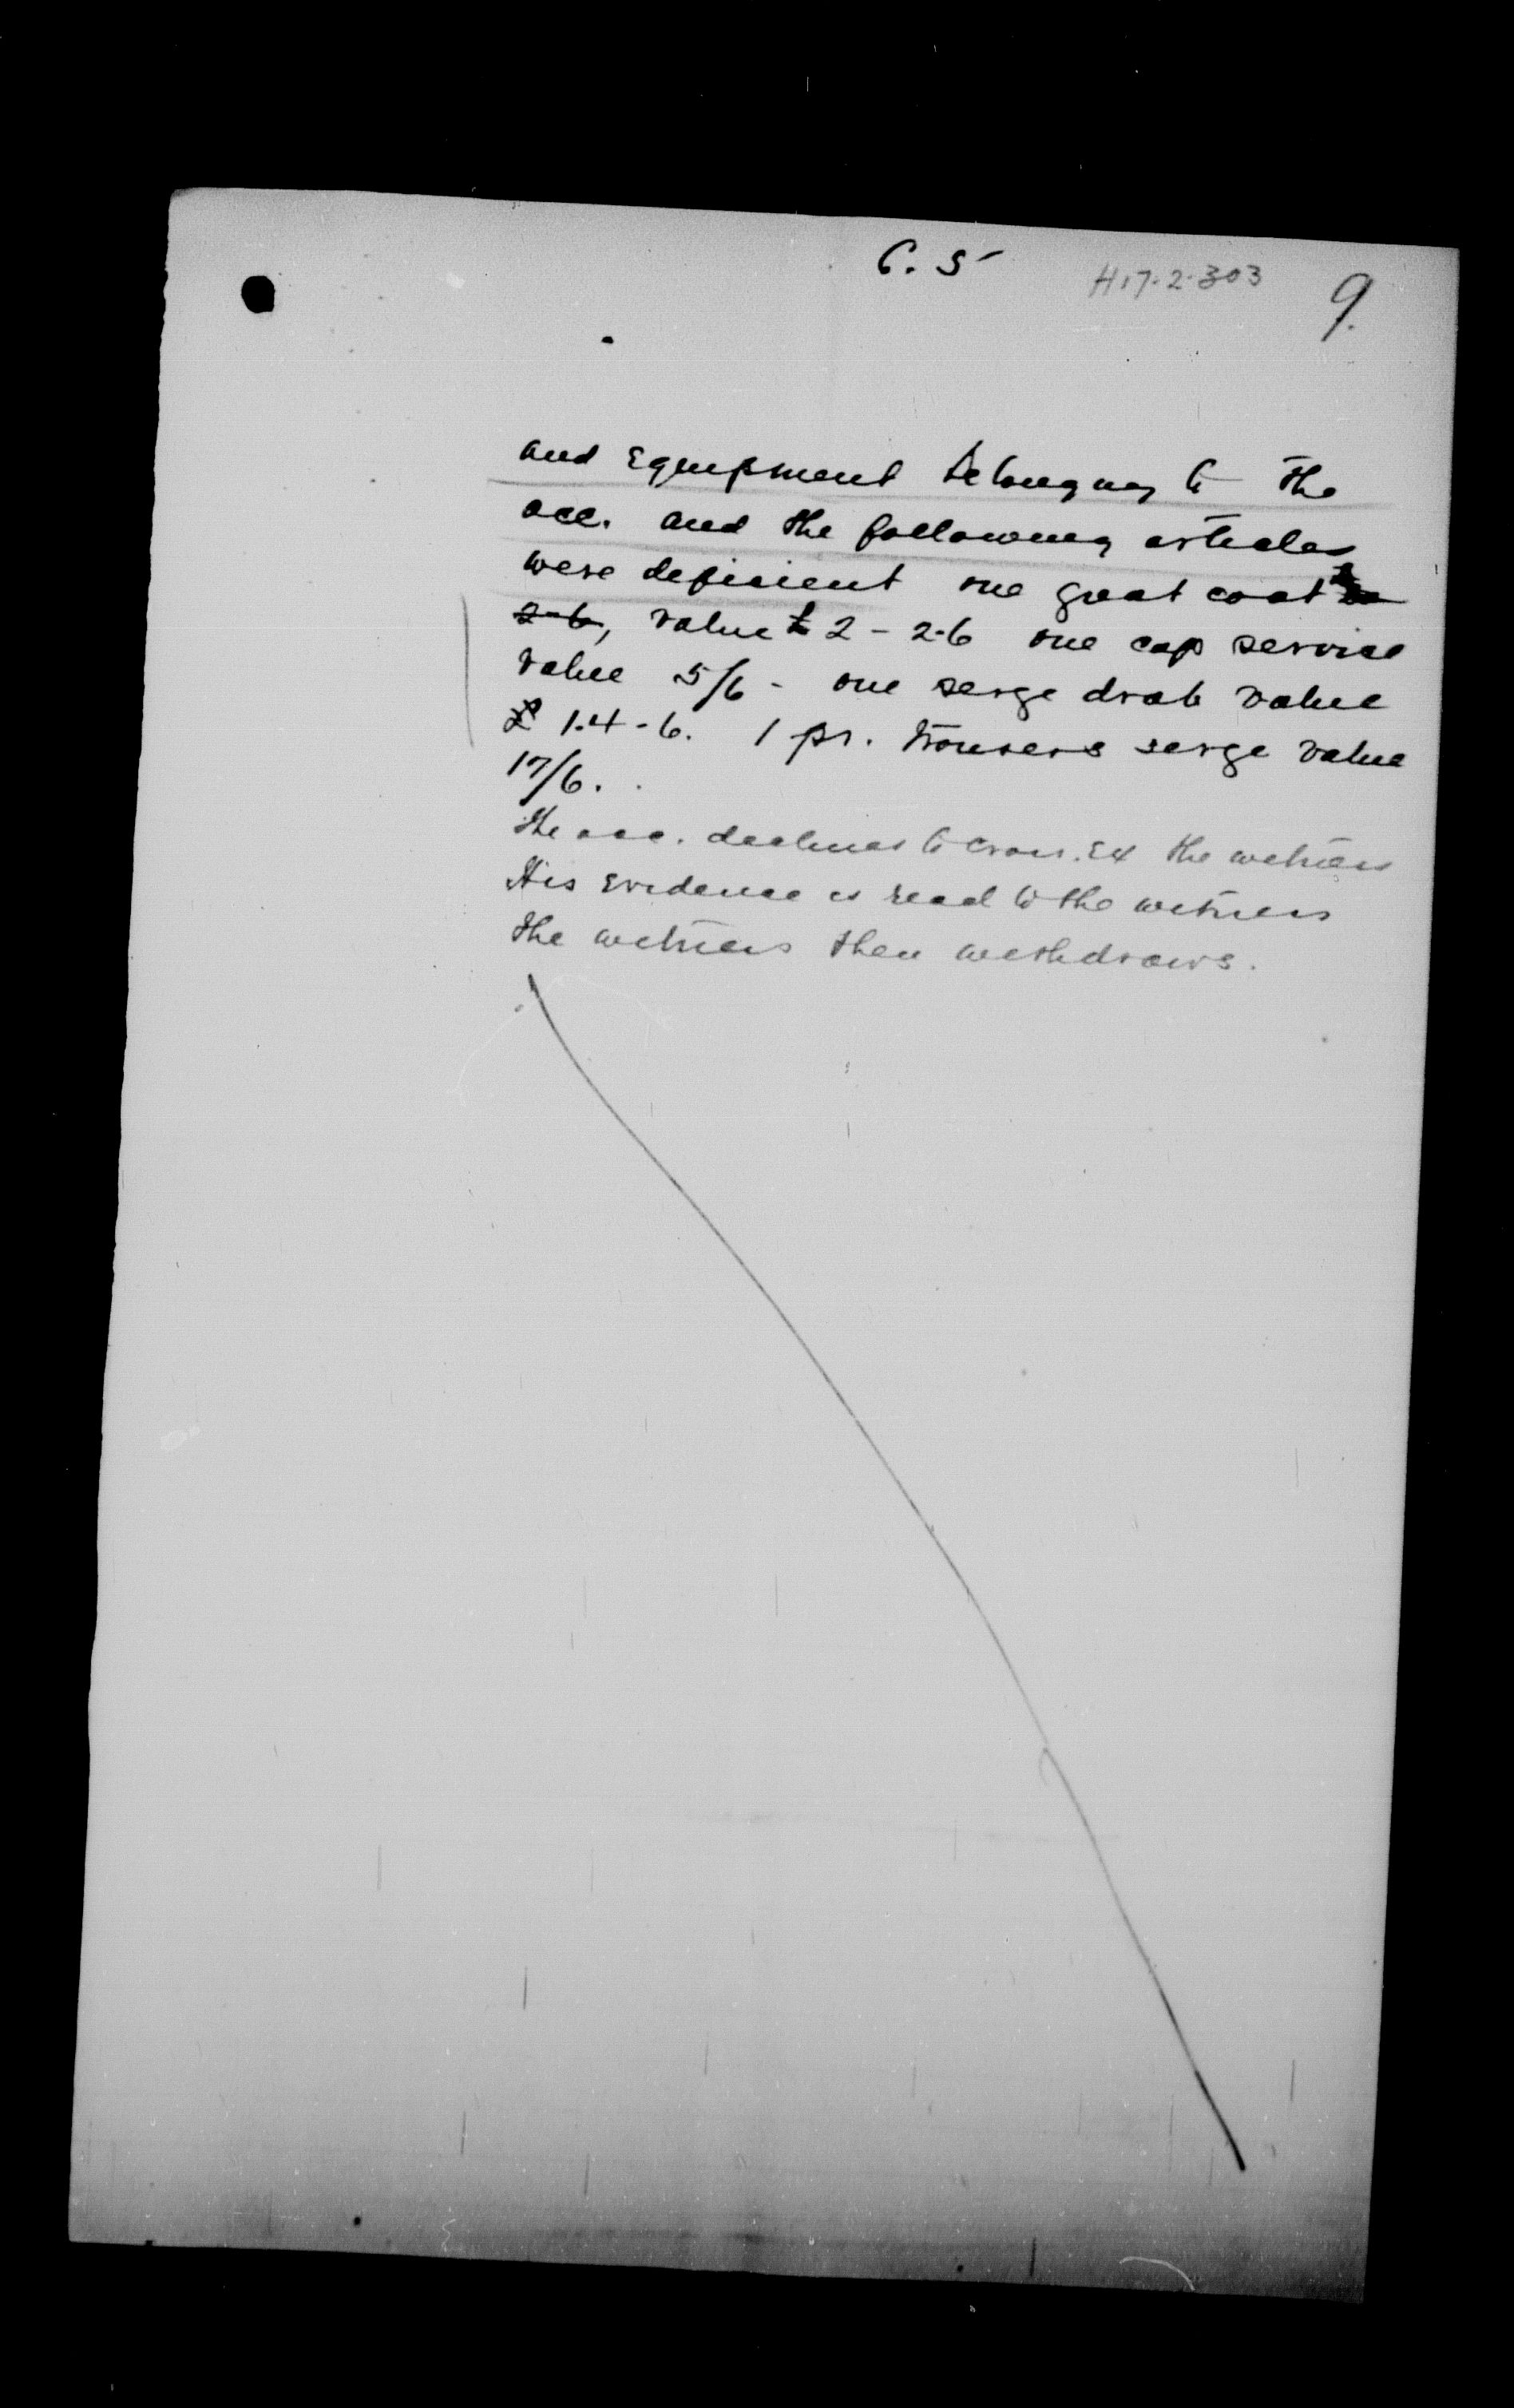 C. 5
H.17.2.303
9.
and Equipment belonging to the
acc. and the following articles
were deficient one great coat
2-6, value £ 2 - 2-6 one cap service
value 5/6 - one serge drab value
£ 1.4-6. 1 pr. trousers serge value
17/6.
The acc. declines to cross. Ex the witness
His Evidence is read to the witness
The witness then withdraws.